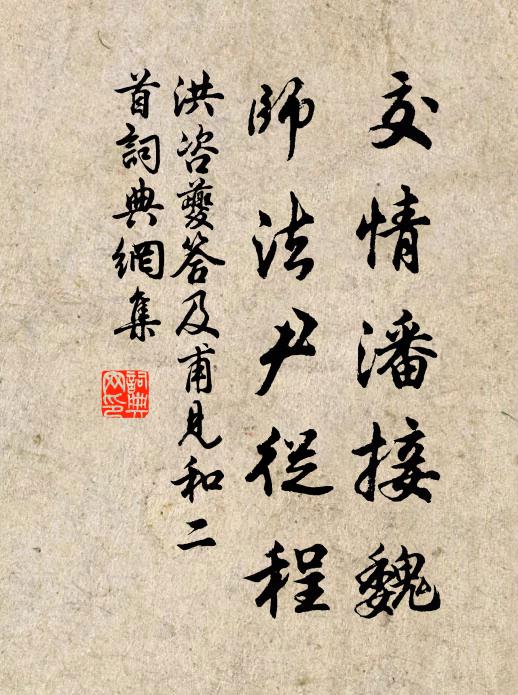 交情潘接魏
師法尹從程
洪咨夔答及甫見和二
首詞典網集
詞典
网印